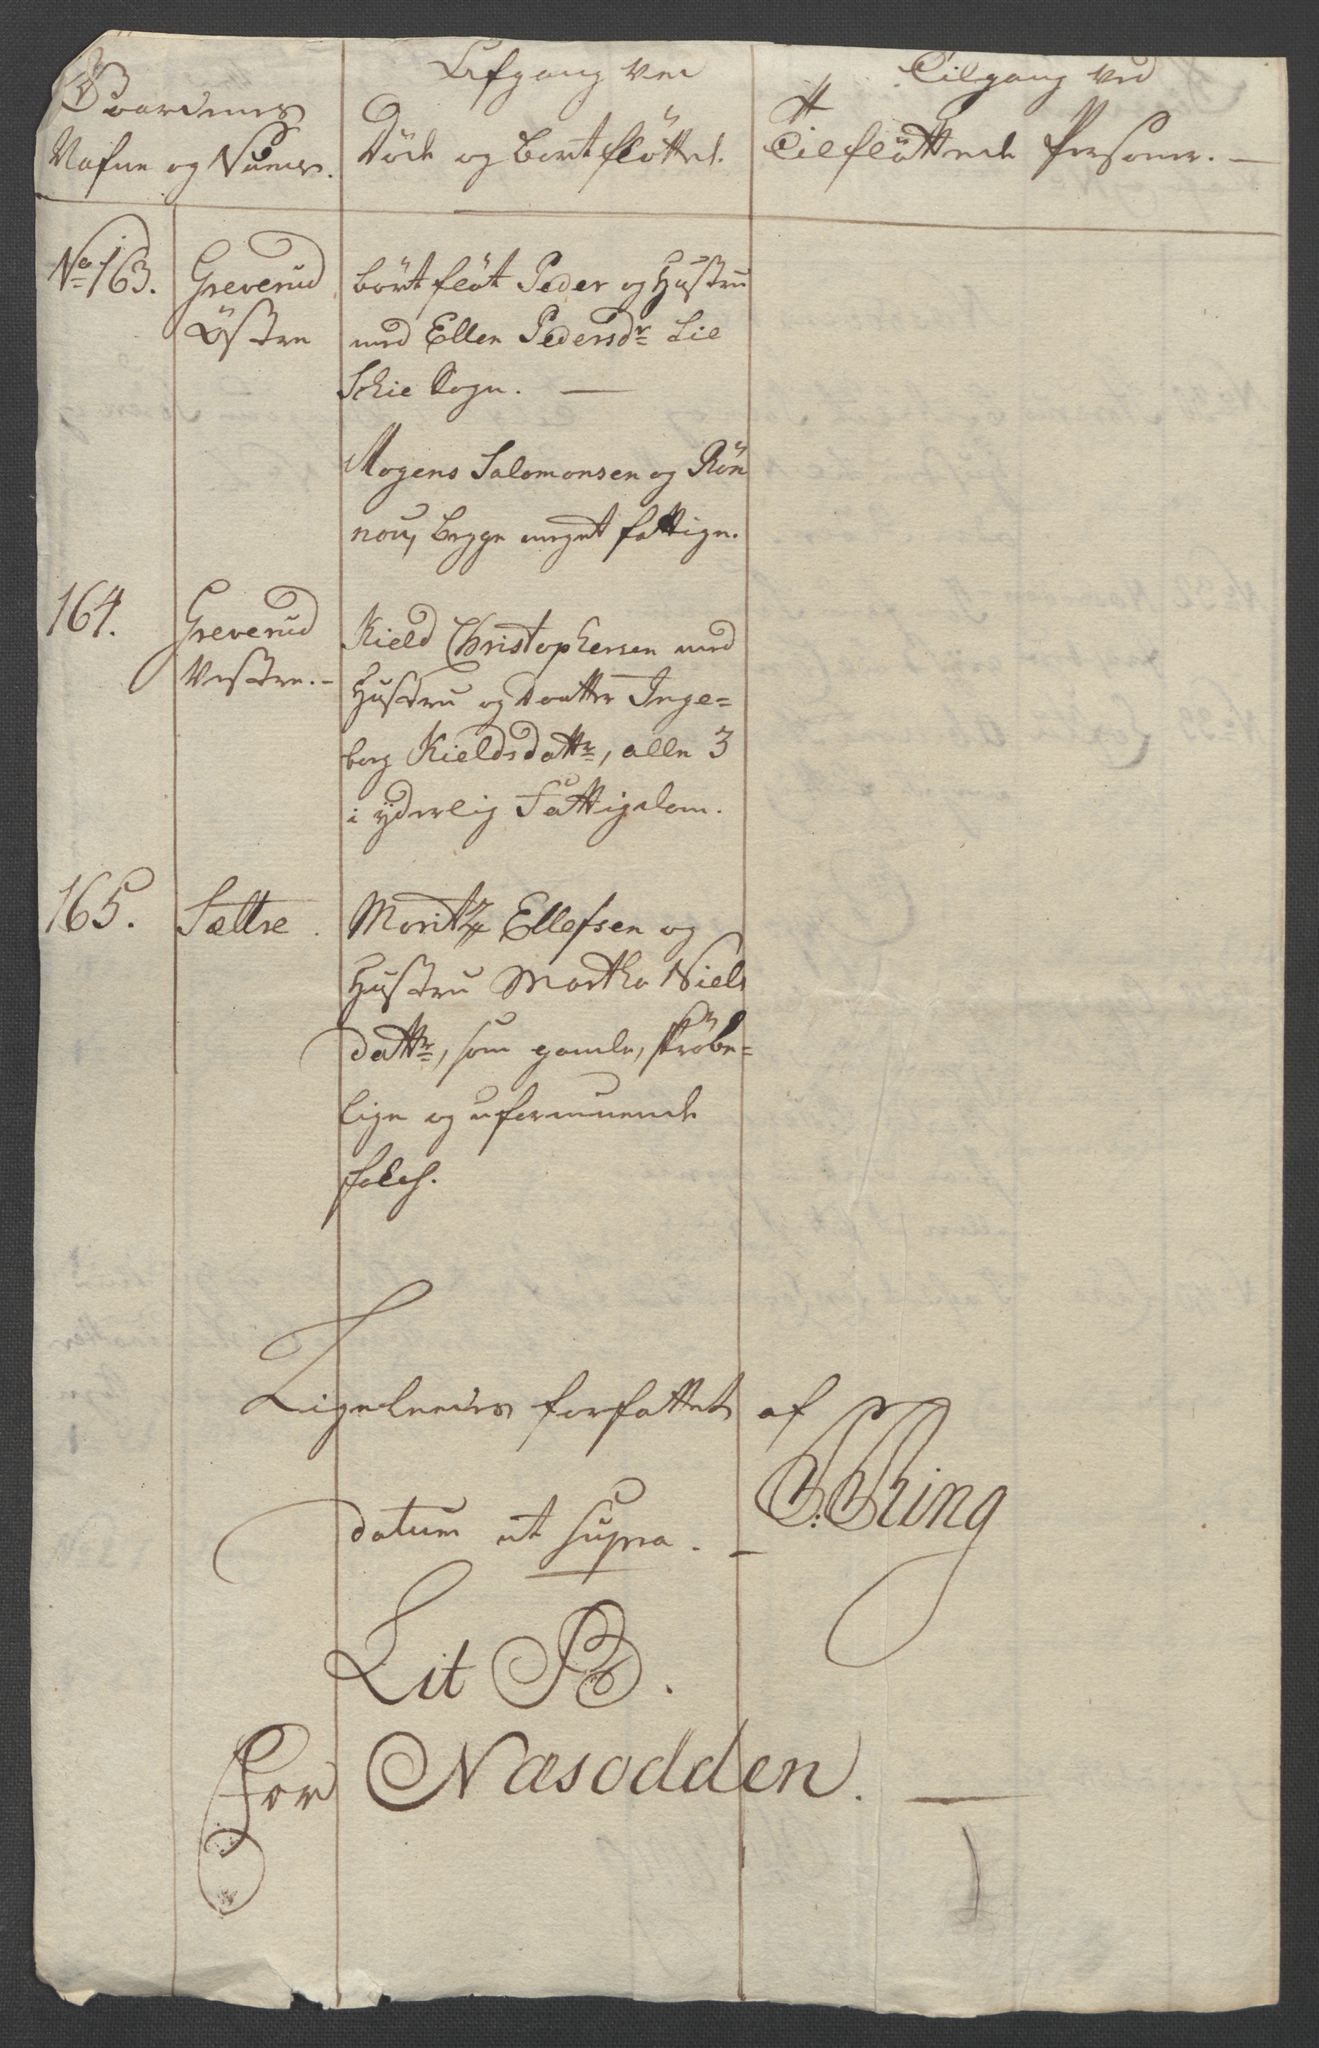 Gaardenes
Nafne og Numr.
Afgang ved
Døde og bortflöttet.
Tilgang ved
Tilflöttede Personer. —
No 163.
Greverud
Östre
bört flöt Peder og Hustru
med Ellen Pedersdr Lie
Schie Sogn. —
Mogens Salomonsen og Rön
nou, begge meget fattige.
164.
Greverud
Vestre. -
Kield Christophersen med
Hustru og Daatter Inge=
borg Kieldsdattr, alle 3
i yderlig Fattigdom.
165.
Sættre.
Moritz Ellefsen og
Hustru Martha Niels
dattr, som gamle, skröbe=
lige og uformuende
folch.
Ligeleedes forfattet af
datum ut supra. -
Ring
Lit B.
For Næsodden. —